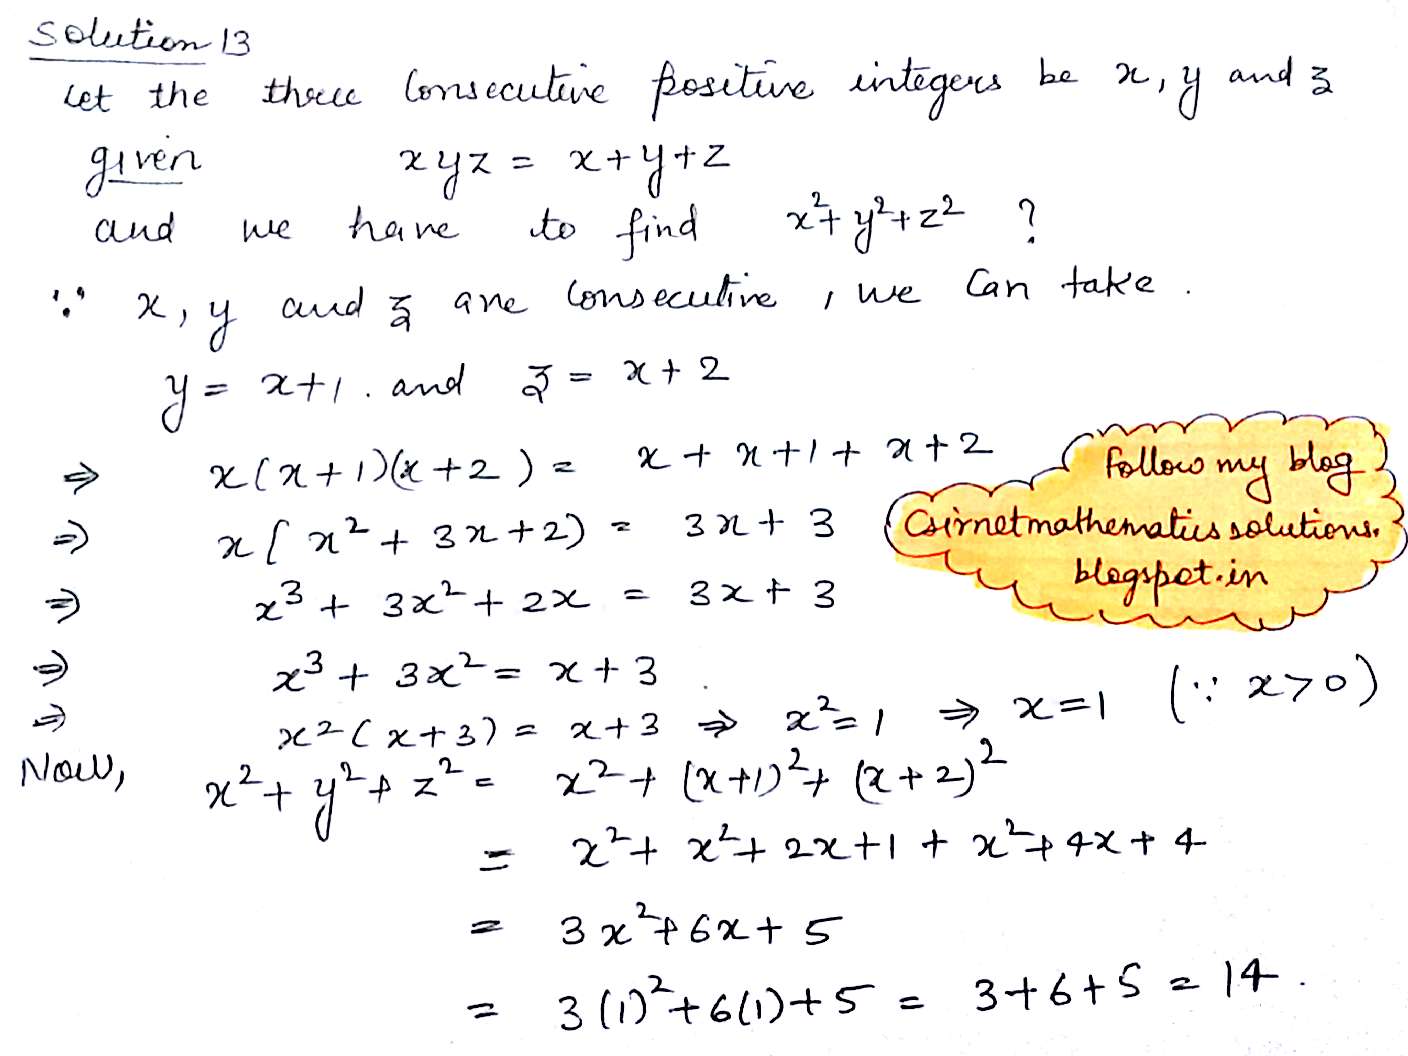 Solution 13
Let the three consecutive positive integers be x, y and z
given xyz = x+y+z
and we have to find x²+y²+z² ?
∵ x, y and z are consecutive, we can take.
y = x+1. and z = x+2
⇒ x(x+1)(x+2) = x + x+1 + x+2
⇒ x[x²+3x+2) = 3x+3
⇒ x³+3x²+2x = 3x+3
⇒ x³+3x² = x+3
⇒ x²(x+3) = x+3 ⇒ x²=1 ⇒ x=1 (∵ x>0)
Now, x²+y²+z² = x²+(x+1)²+(x+2)²
= x²+x²+2x+1+x²+4x+4
= 3x²+6x+5
= 3(1)²+6(1)+5 = 3+6+5 = 14.
Follow my blog
Csirnetmathematics solutions.
blogspot.in